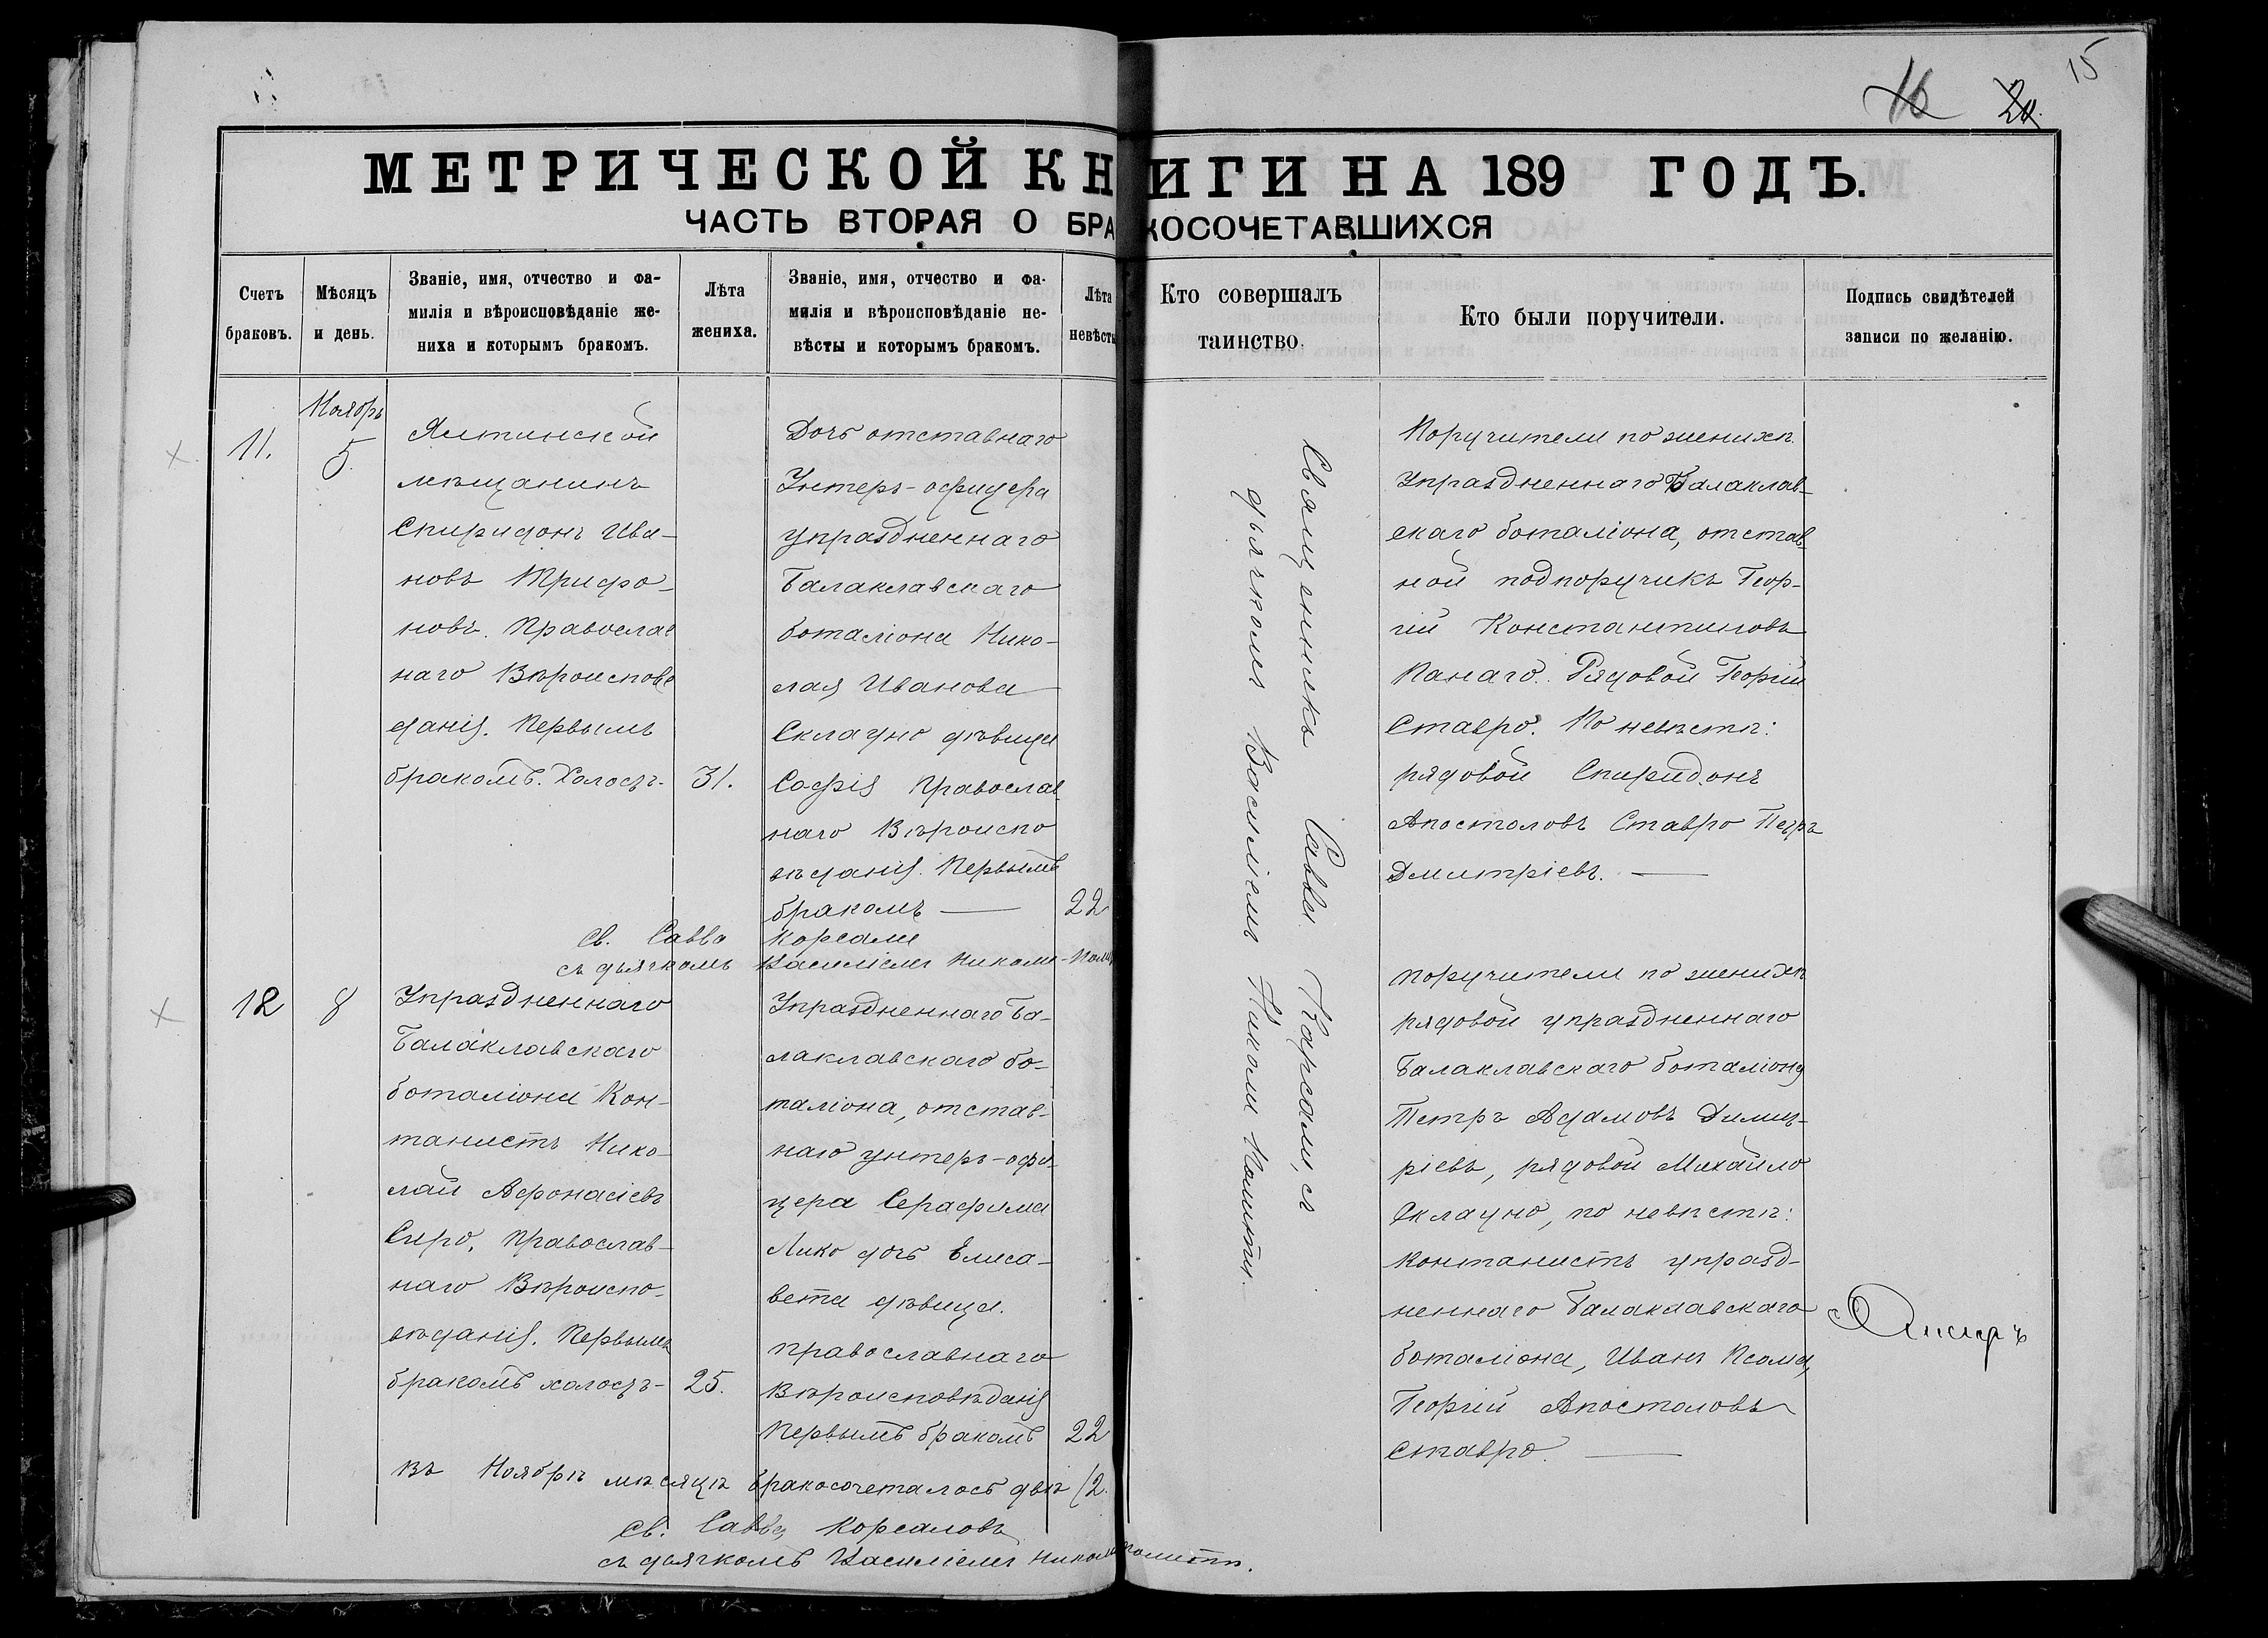 15
16 24.
МЕТРИЧЕСКОЙ КНИГИ НА 189 ГОДЪ.
ЧАСТЬ ВТОРАЯ О БРАКОСОЧЕТАВШИХСЯ
Счетъ
браковъ.
Мѣсяцъ
и день.
Званіе, имя, отчество и фа-
милія и вѣроисповѣданіе же-
ниха и которымъ бракомъ.
Лѣта
жениха.
Званіе, имя, отчество и фа-
милія и вѣроисповѣданіе не-
вѣсты и которымъ бракомъ.
Лѣта
невѣсты
Кто совершалъ
таинство.
Кто были поручители.
Подпись свидѣтелей
записи по желанію.
11.
Ноябрь
5
Ялтинской
мѣщанинъ
Спиридонъ Ива-
новъ Трифо-
новъ. Православ
наго Вѣроиспове
данія. Первымъ
бракомъ. Холостъ.
31.
Дочь отставнаго
Унтеръ-офицера
упраздненнаго
Балаклавскаго
боталіона Нико-
лая Иванова
Склауно дѣвица
Софія Православ
наго Вѣроиспо
вѣданія. Первымъ
бракомъ —
22
Св. Савва Корсали
съ дьячкомъ Василіемъ Николи-Поли
Священникъ Савва Карсали, съ
дьячкомъ Василіемъ Николи Политы.
Поручители по женихѣ
Упраздненнаго Балаклав-
скаго боталіона, отстав-
ной подпоручикъ Геор-
гій Константиновъ
Панаго. Рядовой Георгій
Ставро. По невѣстѣ:
рядовой Спиридонъ
Апостоловъ Ставро Петръ
Дмитріевъ. —
12
8
Упраздненнаго
Балаклавскаго
боталіона Кон-
танистъ Нико-
лай Афонасіевъ
Сиро, православ-
наго Вѣроиспо-
вѣданія. Первымъ
бракомъ холостъ-
25.
Упраздненнаго Ба-
лаклавскаго бо-
таліона, отстав-
наго унтеръ-офи-
цера Серафима
Лико дочь Елиса-
вета дѣвица.
православнаго
Вѣроисповѣданія
Первымъ бракомъ
22
поручители по женихѣ
рядовой упраздненнаго
Балаклавскаго боталіона
Петръ Адамовъ Димит-
ріевъ, рядовой Михайло
Склауно, по невѣстѣ:
контанистъ упразд-
неннаго Балаклавскаго
боталіона, Иванъ Псома,
Георгій Апостоловъ
Ставро. —
Въ Ноябрѣ мѣсяцѣ бракосочеталось двѣ (2.
Св. Савва Корсаловъ
съ дьячкомъ Василіемъ Николи Полити.